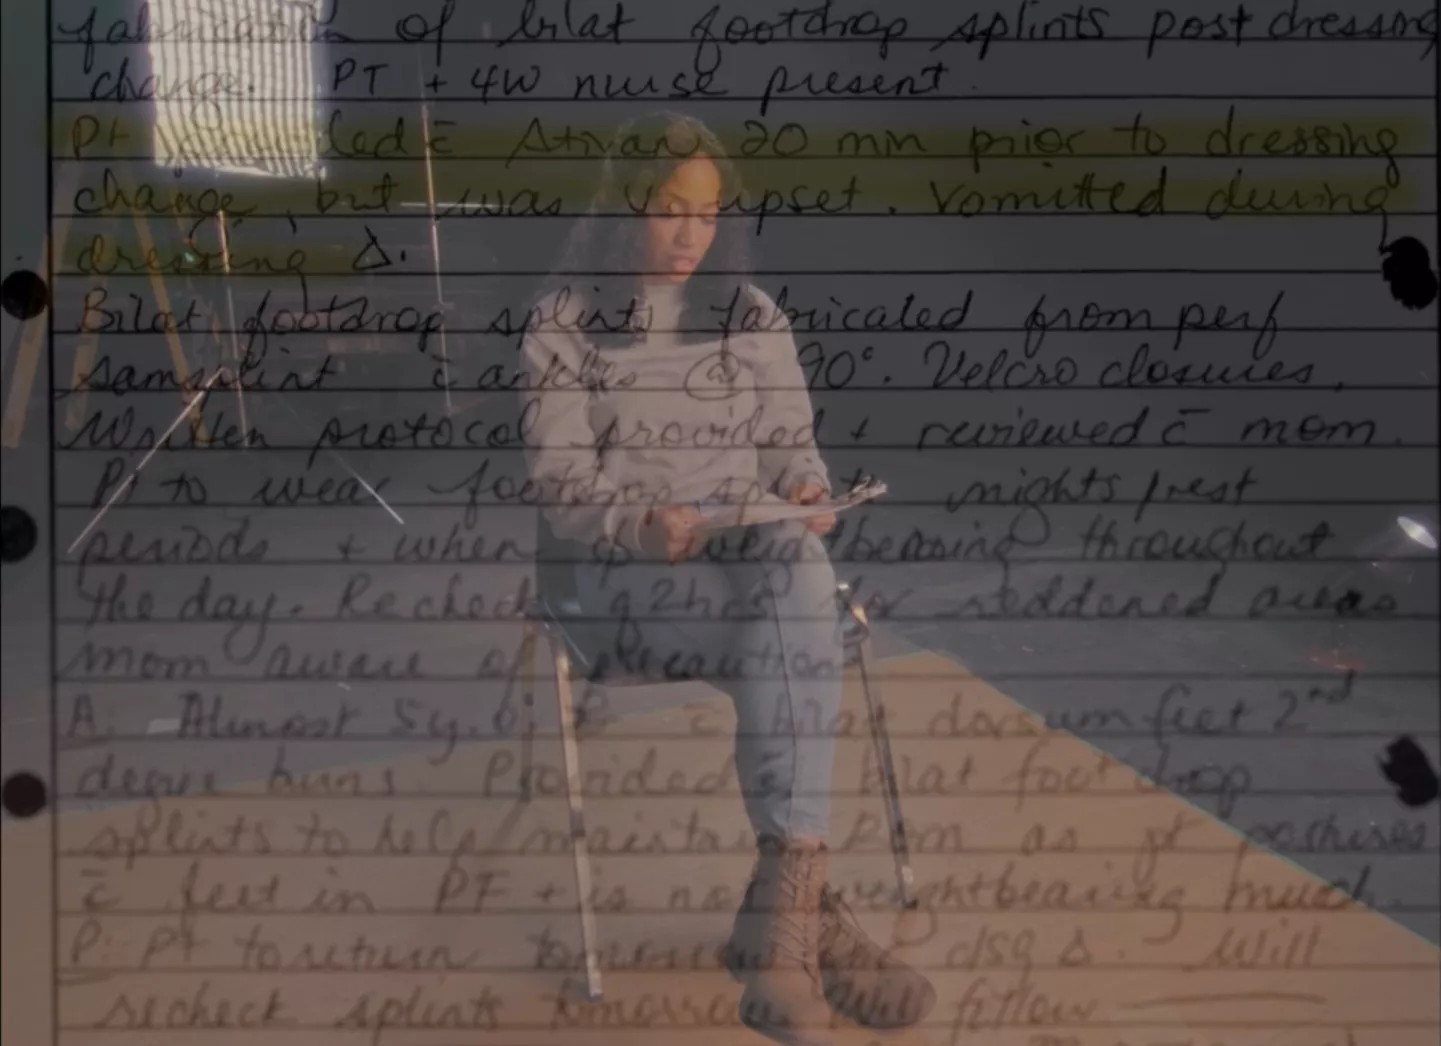 fabrication of bilat footdrop splints post dressing
change. PT + 4W nurse present.
Pt c̄ Ativan 20 min prior to dressing
change, but was v upset. Vomitted during
dressing Δ.
Bilat footdrop splints fabricated from perf
samsplint c̄ ankles @ 90°. Velcro closures.
Written protocol provided + reviewed c̄ mom.
Pt to wear footdrop splints nights/rest
periods + when weightbearing throughout
the day. Recheck q2hrs for reddened areas
mom aware of precautions
A: Almost 5y. c̄ bilat dorsum feet 2nd
degree burns. Provided c̄ bilat foot drop
splints to help maintain ROM as pt postures
c̄ feet in PF + is not weightbearing much.
P: Pt to return tomorrow for dsg Δ. Will
recheck splints tomorrow. Will follow